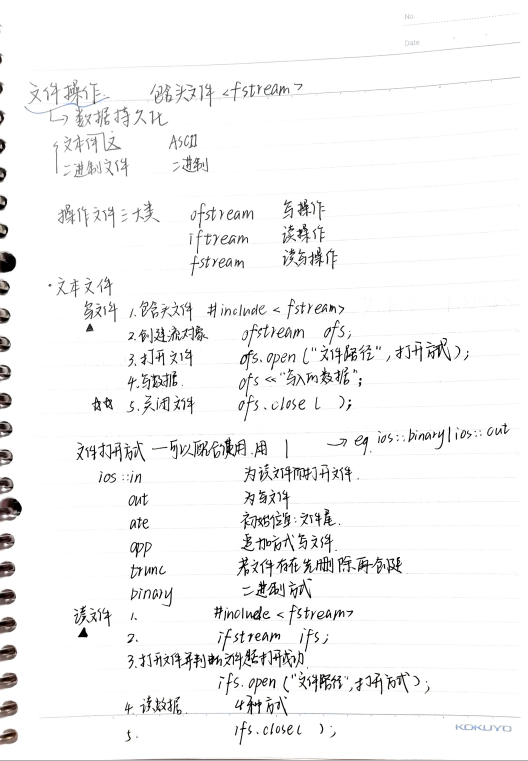 No.
Date
文件操作. 包含头文件 <fstream>
↳ 数据持久化
文本文 ASCII
二进制文件 二进制
操作文件三大类 ofstream 写操作
iftream 读操作
fstream 读写操作
·文本文件
写文件 1.包含头文件 #include <fstream>
▲ 2.创建流对象 ofstream ofs;
3.打开文件 ofs.open ("文件路径", 打开方式);
4.写数据. ofs << "写入的数据";
☆☆ 5.关闭文件 ofs.close ( );
文件打开方式 — 可以配合使用.用 | → eg. ios::binary|ios::out
ios ::in 为读文件而打开文件.
out 为写文件
ate 初始位置:文件尾.
app 追加方式写文件.
trunc 若文件存在先删除再创建
binary 二进制方式
读文件 1. #include <fstream>
▲ 2. ifstream ifs;
3.打开文件并判断文件是否打开成功
ifs.open ("文件路径",打开方式);
4. 读数据. 4种方式
5. ifs.close( );
KOKUYO